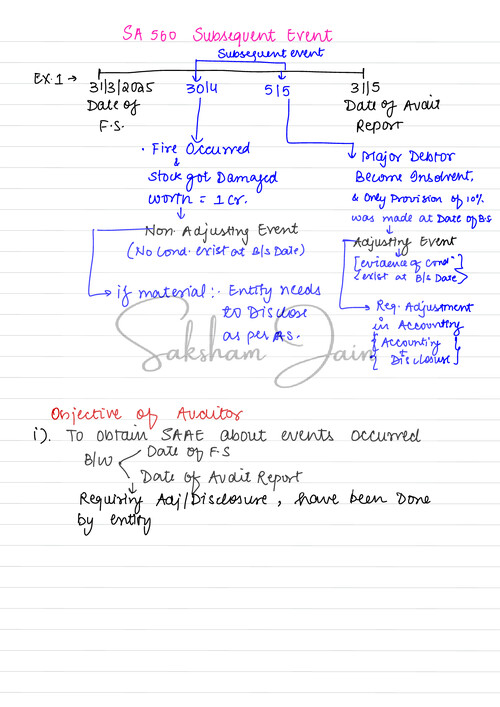 SA 560 Subsequent Event
Subsequent event
Ex.1 →
31/3/2025
Date of
F.S.
30/4
5/5
31/5
Date of Audit
Report
· Fire Occurred
&
Stock got Damaged
worth = 1 Cr.
Non. Adjusting Event
(No Cond. exist at B/s Date)
→ if material :- Entity needs
to Disclose
as per AS.
Major Debtor
Become Insolvent,
& Only Provision of 10%
was made at Date of B.S
Adjusting Event
[evidence of Condn
exist at B/s Date]
→ Req. Adjustment
in Accounting
{ Accounting
+
Disclosure }
Saksham Jain
Objective of Auditor
i). To obtain SAAE about events occurred
B/W
Date of F.S
Date of Audit Report
Requiring Adj/Disclosure, have been Done
by entity